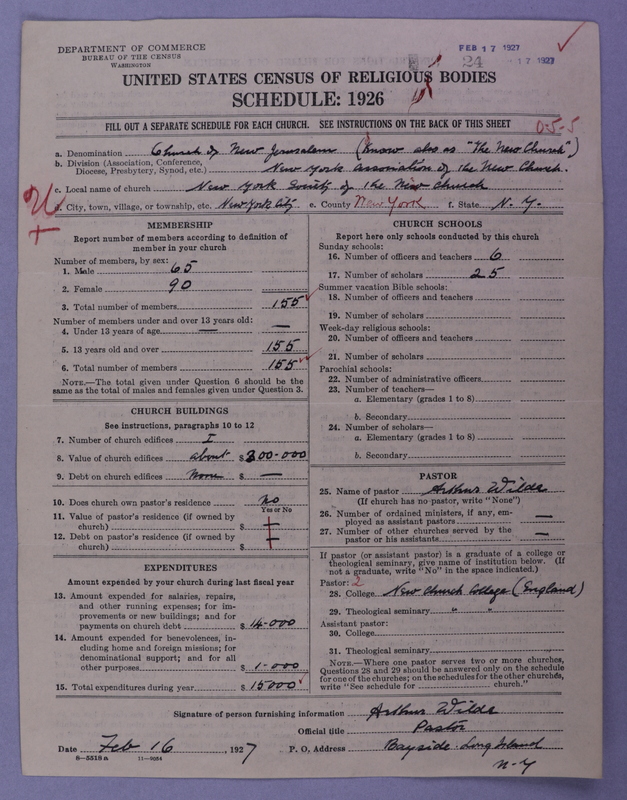 DEPARTMENT OF COMMERCE
BUREAU OF THE CENSUS
WASHINGTON
FEB 17 1927
24
17 1927
UNITED STATES CENSUS OF RELIGIOUS BODIES
SCHEDULE: 1926
FILL OUT A SEPARATE SCHEDULE FOR EACH CHURCH. SEE INSTRUCTIONS ON THE BACK OF THIS SHEET
0-5-5
a. Denomination Church of New Jerusalem (Know also as "The New Church")
b. Division (Association, Conference, Diocese, Presbytery, Synod, etc.) New York Association of the New Church.
c. Local name of church New York Society of the New Church
d. City, town, village, or township, etc. New York City e. County New York f. State N. Y.
MEMBERSHIP
Report number of members according to definition of member in your church
Number of members, by sex:
1. Male 65
2. Female 90
3. Total number of members 155
Number of members under and over 13 years old:
4. Under 13 years of age — —
5. 13 years old and over 155
6. Total number of members 155
NOTE.—The total given under Question 6 should be the same as the total of males and females given under Question 3.
CHURCH BUILDINGS
See instructions, paragraphs 10 to 12
7. Number of church edifices I
8. Value of church edifices about $300-000
9. Debt on church edifices None $ —
10. Does church own pastor's residence No
Yes or No
11. Value of pastor's residence (if owned by church) $
12. Debt on pastor's residence (if owned by church) $
EXPENDITURES
Amount expended by your church during last fiscal year
13. Amount expended for salaries, repairs, and other running expenses; for improvements or new buildings; and for payments on church debt $14-000
14. Amount expended for benevolences, including home and foreign missions; for denominational support; and for all other purposes $1-000
15. Total expenditures during year $15000
CHURCH SCHOOLS
Report here only schools conducted by this church
Sunday schools:
16. Number of officers and teachers 6
17. Number of scholars 25
Summer vacation Bible schools:
18. Number of officers and teachers
19. Number of scholars
Week-day religious schools:
20. Number of officers and teachers
21. Number of scholars
Parochial schools:
22. Number of administrative officers
23. Number of teachers—
a. Elementary (grades 1 to 8)
b. Secondary
24. Number of scholars—
a. Elementary (grades 1 to 8)
b. Secondary
PASTOR
25. Name of pastor Arthur Wilde
(If church has no pastor, write "None")
26. Number of ordained ministers, if any, employed as assistant pastors —
27. Number of other churches served by the pastor or his assistants —
If pastor (or assistant pastor) is a graduate of a college or theological seminary, give name of institution below. (If not a graduate, write "No" in the space indicated.)
Pastor: 2
28. College New Church College (England)
29. Theological seminary " "
Assistant pastor:
30. College
31. Theological seminary
NOTE.—Where one pastor serves two or more churches, Questions 28 and 29 should be answered only on the schedule for one of the churches; on the schedules for the other churches, write "See schedule for church."
Signature of person furnishing information Arthur Wilde
Official title Pastor
Date Feb 16, 1927 P. O. Address Bayside - Long Island
N-Y
8-5518a 11-9054